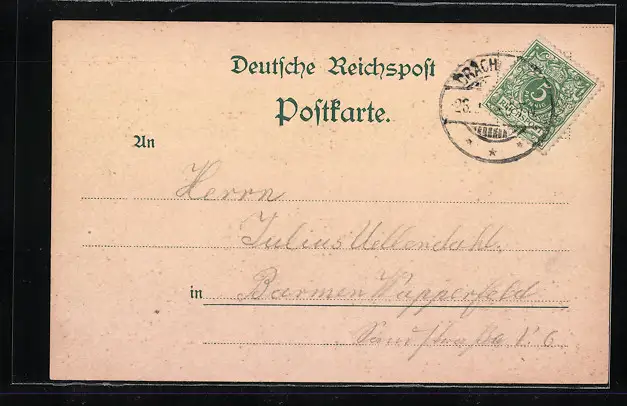 Deutsche Reichspost
Postkarte.
RACH
5
An
Herrn
Julius Uellendahl.
in Barmen Wupperfeld